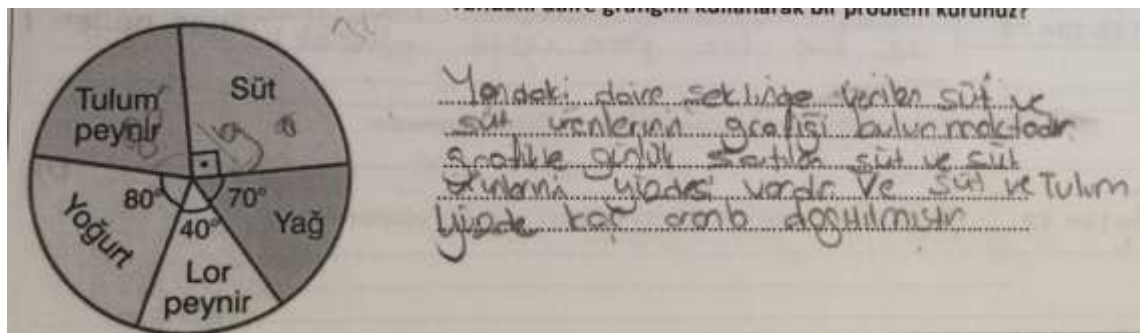 Yandaki daire grafiğini kullanarak bir problem kurunuz?
Tulum
peynir
Süt
80°
70°
Yoğurt
40°
Yağ
Lor
peynir
Yandaki daire şeklinde verilen süt ve
süt ürünlerinin grafiği bulunmaktadır.
Grafikte günlük satılan süt ve süt
ürünlerinin yüzdesi vardır. Ve Süt ve Tulum
yüzde kaç oranla dağıtılmıştır